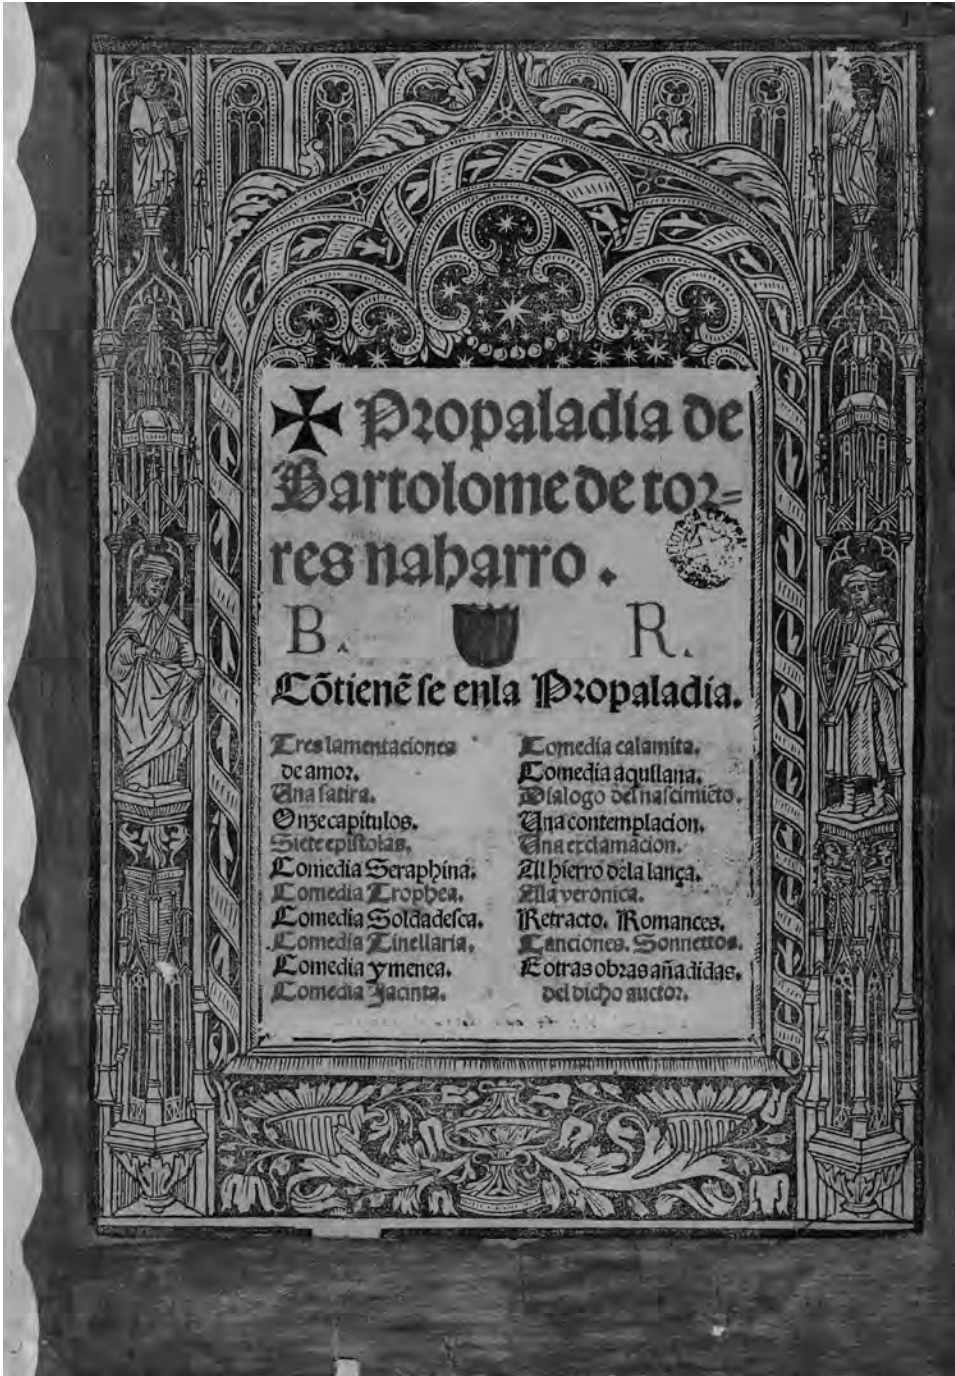 ✠ Propaladia de
Bartolome de tor=
res naharro.
B. R.
Cõtienẽ se enla Propaladia.
Tres lamentaciones
de amor.
Una satira.
Onze capitulos.
Siete epistolas.
Comedia Seraphina.
Comedia Trophea.
Comedia Soldadesca.
Comedia Tinellaria.
Comedia ymenea.
Comedia Jacinta.
Comedia calamita.
Comedia aquilana.
Dialogo del nascimiẽto.
Una contemplacion.
Una exclamacion.
Al hierro dela lança.
Ala veronica.
Retracto. Romances.
Canciones. Sonnettos.
E otras obras añadidas.
del dicho auctor.